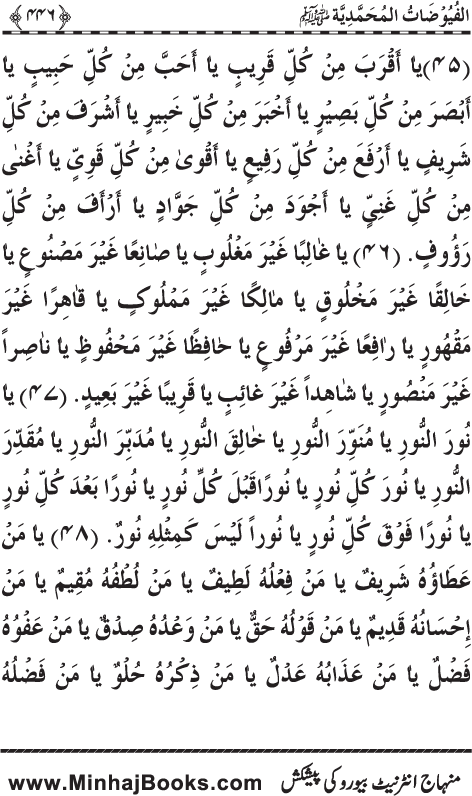 الفُيُوْضَاتُ المُحَمَّدِيَّة ﷺ ﴿۴۴۶﴾
(۴۵)يا أَقْرَبَ مِنْ كُلِّ قَرِيبٍ يا أَحَبَّ مِنْ كُلِّ حَبِيبٍ يا
أَبْصَرَ مِنْ كُلِّ بَصِيْرٍ يا أَخْبَرَ مِنْ كُلِّ خَبِيرٍ يا أَشْرَفَ مِنْ كُلِّ
شرِيفٍ يا أَرْفَعَ مِنْ كُلِّ رَفِيعٍ يا أَقْوىٰ مِنْ كُلِّ قَوِيٍّ يا أَغْنٰى
مِنْ كُلِّ غَنِيٍّ يا أَجْوَدَ مِنْ كُلِّ جَوَّادٍ يا أَرْأَفَ مِنْ كُلِّ
رَؤُوفٍ. (۴۶) يا غالِبًا غَيْرَ مَغْلُوبٍ يا صانِعًا غَيْرَ مَصْنُوعٍ يا
خالِقًا غَيْرَ مَخْلُوقٍ يا مالِكًا غَيْرَ مَمْلُوكٍ يا قاهِرًا غَيْرَ
مَقْهُورٍ يا رافِعًا غَيْرَ مَرْفُوعٍ يا حافِظًا غَيْرَ مَحْفُوظٍ يا ناصِراً
غَيْرَ مَنْصُورٍ يا شاهِداً غَيْرَ غائِبٍ يا قَرِيبًا غَيْرَ بَعِيدٍ. (۴۷) يا
نُورَ النُّورِ يا مُنَوِّرَ النُّورِ يا خالِقَ النُّورِ يا مُدَبِّرَ النُّورِ يا مُقَدِّرَ
النُّورِ يا نُورَ كُلِّ نُورٍ يا نُورًاقَبْلَ كُلِّ نُورٍ يا نُورًا بَعْدَ كُلِّ نُورٍ
يا نُورًا فَوْقَ كُلِّ نُورٍ يا نُوراً لَيْسَ كَمِثْلِهِ نُورٌ. (۴۸) يا مَنْ
عَطاؤُهُ شَرِيفٌ يا مَنْ فِعْلُهُ لَطِيفٌ يا مَنْ لُطْفُهُ مُقِيمٌ يا مَنْ
إِحْسَانُهُ قَدِيمٌ يا مَنْ قَوْلُهُ حَقٌّ يا مَنْ وَعْدُهُ صِدْقٌ يا مَنْ عَفْوُهُ
فَضْلٌ يا مَنْ عَذابُهُ عَدْلٌ يا مَنْ ذِكْرُهُ حُلْوٌ يا مَنْ فَضْلُهُ
منہاج انٹرنیٹ بیورو کی پیشکش www.MinhajBooks.com